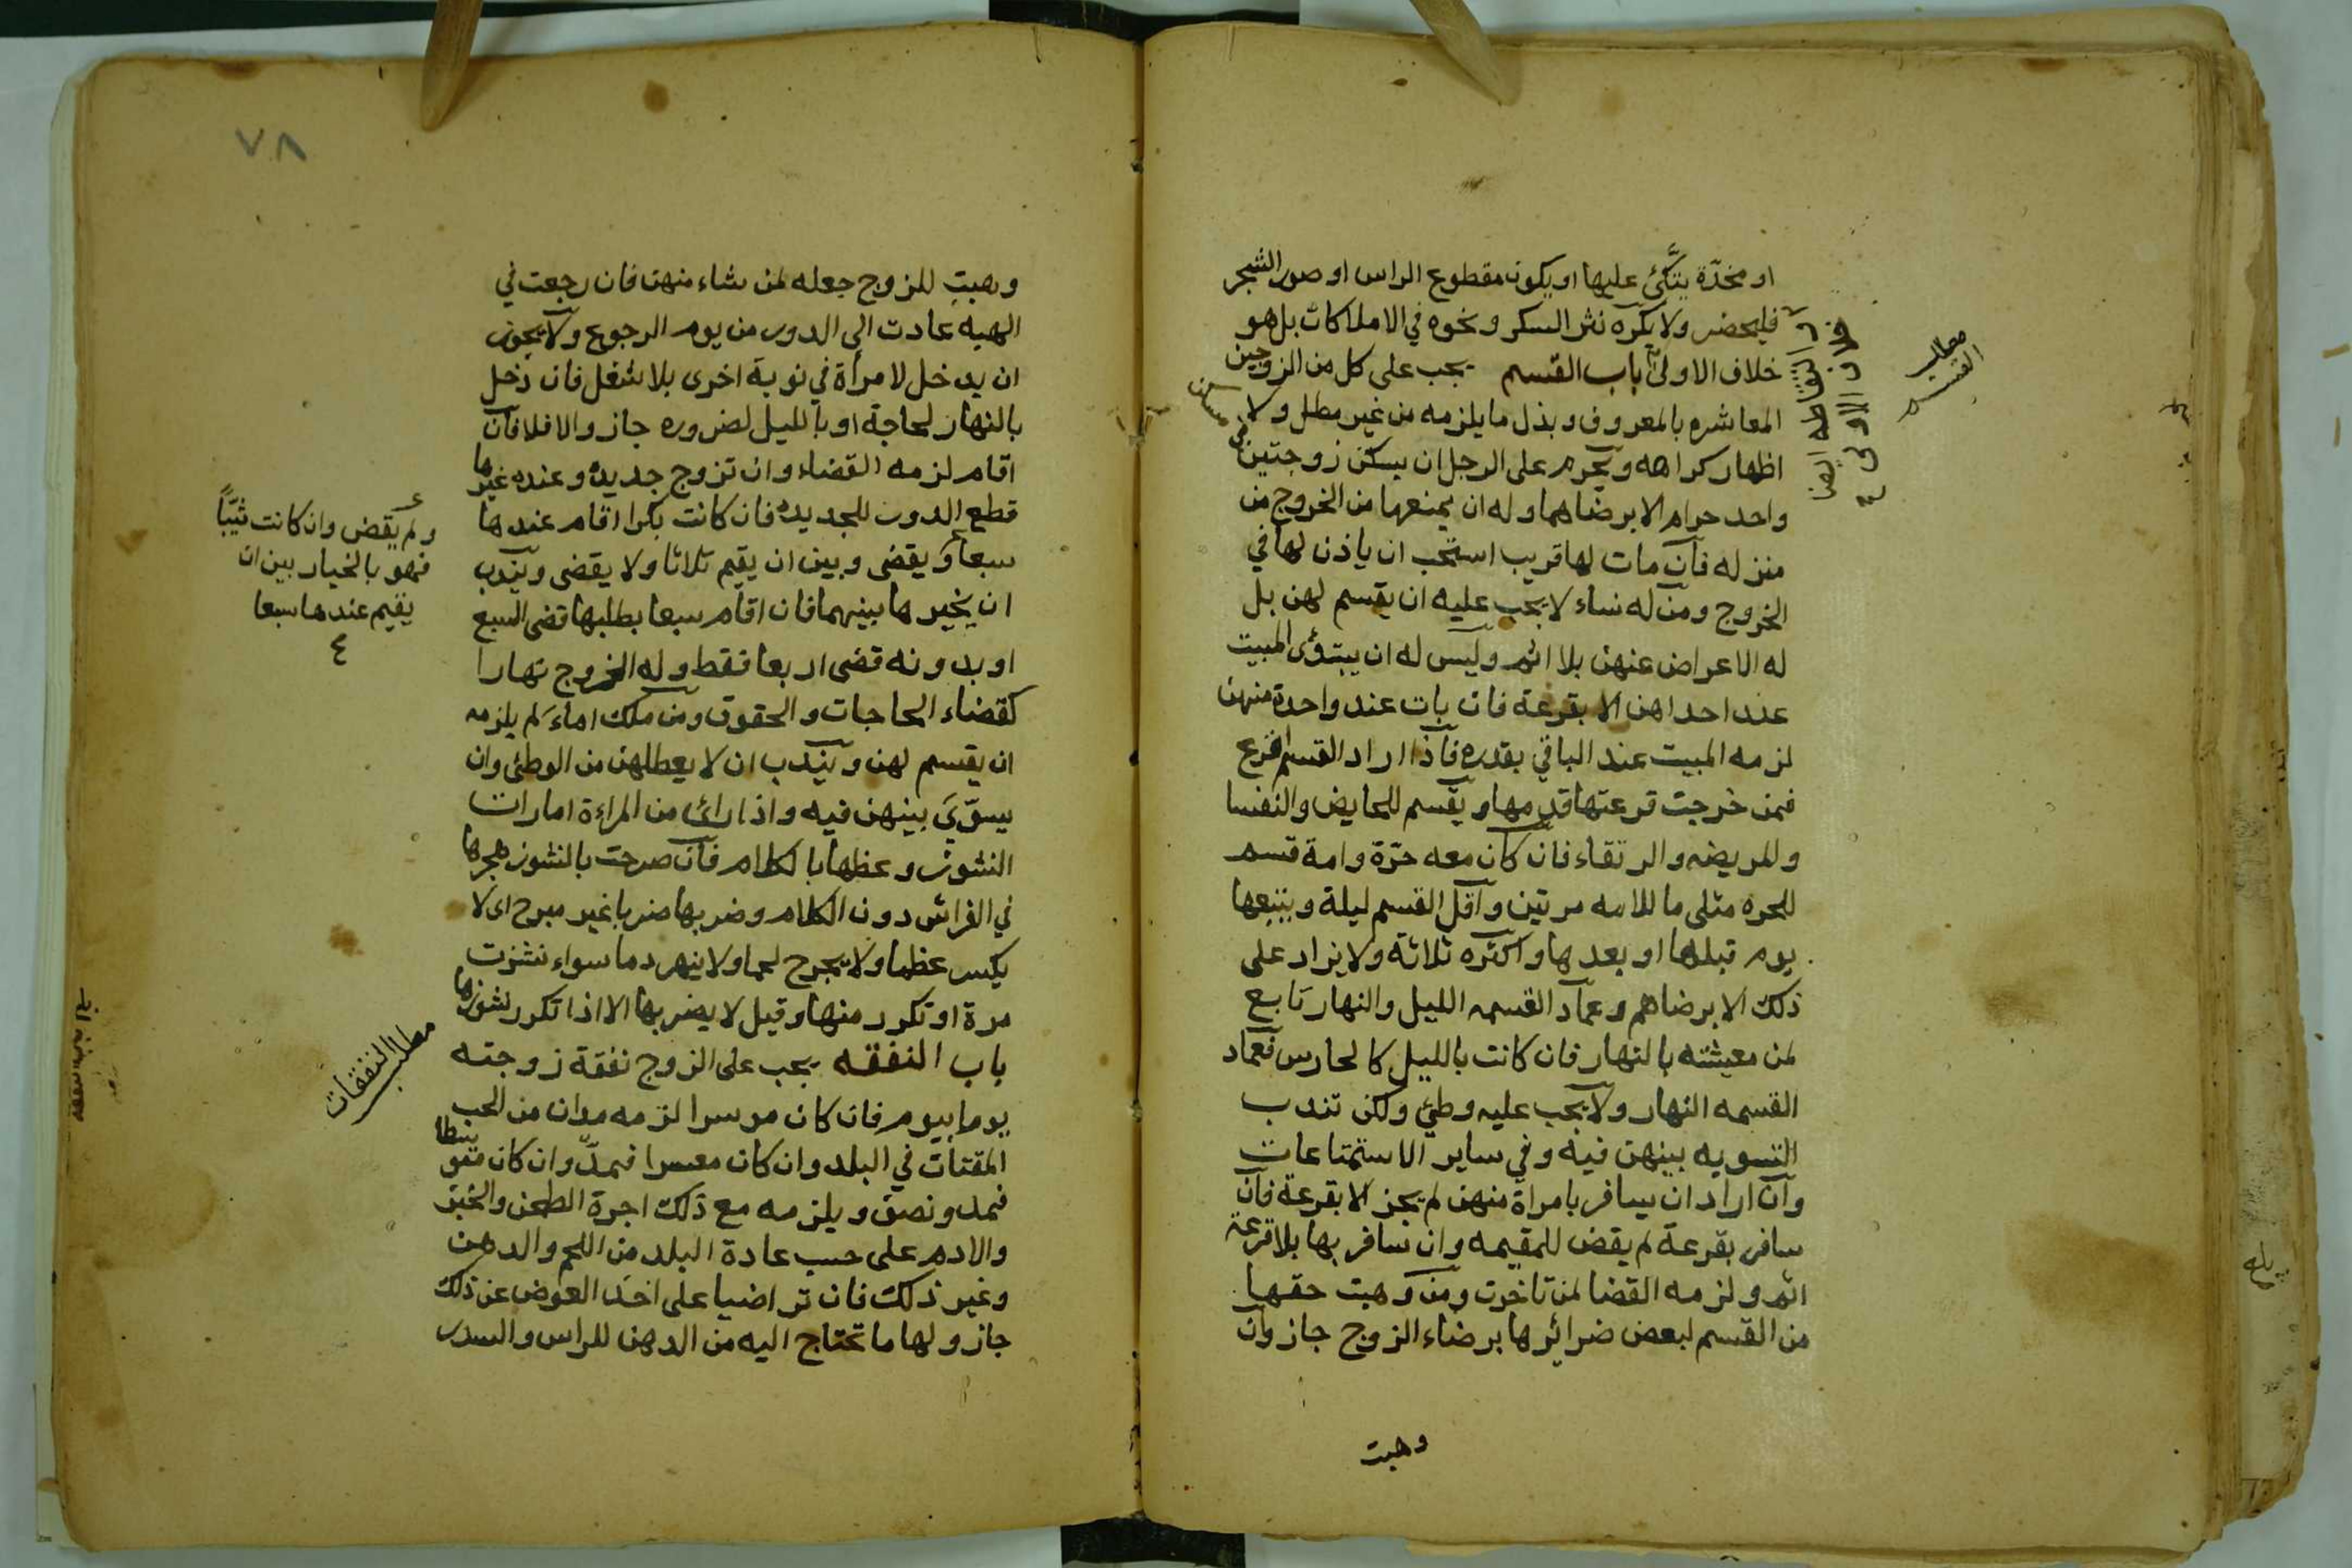 او مخدّة يتّكئ عليها او يكون مقطوع الراس او صور الشجر
فليحضر ولا يكره نثر السكر ونحوه في الاملاكات بل هو
خلاف الاولى باب القسم يجب على كل من الزوجين
المعاشره بالمعروف وبذل ما يلزمه من غير مطل ولا
اظهار كراهه ويحرم على الرجل ان يسكن زوجتين في مسكن
واحد حرام الا برضاهما وله ان يمنعها من الخروج من
منزله فان مات لها قريب استحب ان ياذن لها في
الخروج ومن له نساء لا يجب عليه ان يقسم لهن بل
له الاعراض عنهن بلا اثم وليس له ان يبتدئ المبيت
عند احداهن الا بقرعة فان بات عند واحدة منهن
لزمه المبيت عند الباقي بقدره فاذا اراد القسم اقرع
فمن خرجت قرعتها قدمها ويقسم للحايض والنفسا
والمريضه والرتقاء فان كان معه حرّة وامة قسم
للحره مثلى ما للامه مرتين واقل القسم ليلة ويتبعها
يوم قبلها او بعدها واكثره ثلاثة ولا يزاد على
ذلك الا برضاهم وعماد القسمه الليل والنهار تابع
لمن معيشته بالنهار فان كانت بالليل كالحارس فعماد
القسمه النهار ولا يجب عليه وطئ ولكن تندب
التسويه بينهن فيه وفي ساير الاستمتاعات
وان اراد ان يسافر بامراة منهن لم يجز الا بقرعة فان
سافر بقرعة لم يقض للمقيمه وان سافر بها بلا قرعة
اثم ولزمه القضا لمن تاخرت ومن وهبت حقها
من القسم لبعض ضرائرها برضاء الزوج جاز وان
وهبت
مطلب
القسم
والتقاطه ايضا
خلاف الاولى
وهبت للزوج جعله لمن شاء منهن فان رجعت في
الهبه عادت الى الدور من يوم الرجوع ولا يجوز
ان يدخل لامرأة في نوبة اخرى بلا شغل فان دخل
بالنهار لحاجة او بالليل لضروره جاز والا فلا فان
اقام لزمه القضاء وان تزوج جديدة وعنده غيرها
قطع الدور للجديده فان كانت بكرا اقام عندها
سبعا ويقضى وبين ان يقيم ثلاثا ولا يقضى ويندب
ان يخيرها بينهما فان اقام سبعا بطلبها قضى السبع
او بدونه قضى اربعا فقط وله الخروج نهارا
كقضاء الحاجات والحقوق ومن ملك اماء لم يلزمه
ان يقسم لهن ويندب ان لا يعطلهن من الوطئ وان
يسوّى بينهن فيه واذا رائ من المراءة امارات
النشوز وعظها بالكلام فان صرحت بالنشوز هجرها
في الفراش دون الكلام وضربها ضربا غير مبرح اى لا
يكسر عظما ولا يجرح لحما ولا ينهر دما سواء نشزت
مرة او تكرر منها وقيل لا يضربها الا اذا تكرر نشوزها
باب النفقه يجب على الزوج نفقة زوجته
يوما بيوم فان كان موسرا لزمه مدان من الحب
المقتات في البلد وان كان معسرا فمدّ وان كان متوسطا
فمد ونصف ويلزمه مع ذلك اجرة الطحن والخبز
والادم على حسب عادة البلد من اللحم والدهن
وغير ذلك فان تراضيا على اخذ العوض عن ذلك
جاز ولها ما تحتاج اليه من الدهن للراس والسدر
ولم يقض وان كانت ثيّبًا
فهو بالخيار بين ان
يقيم عندها سبعا
مطلب النفقات
٧٨